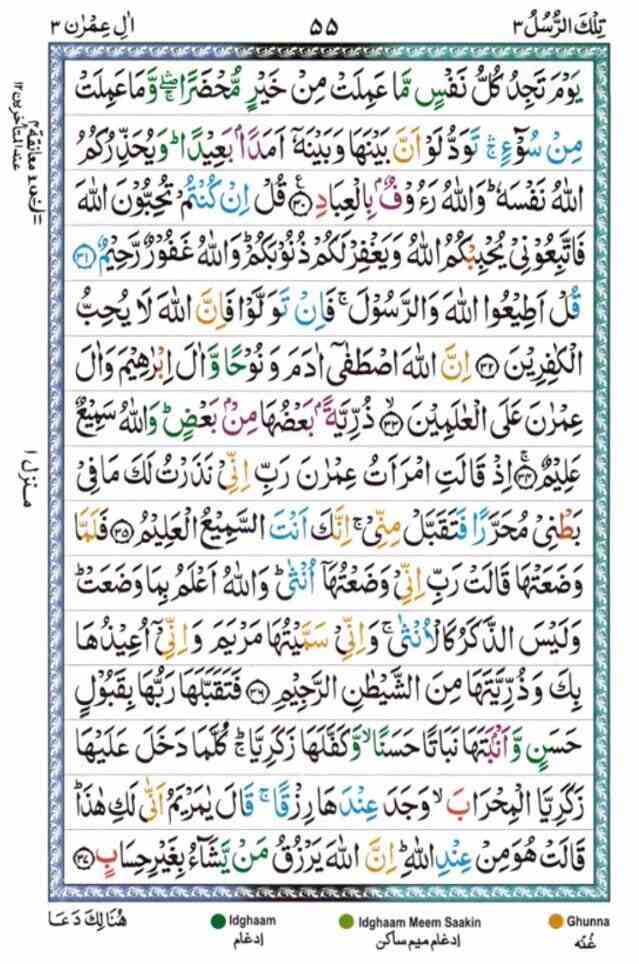 تِلْكَ الرُّسُلُ ۳
۵۵
اٰلِ عِمْرٰن ۳
يَوْمَ تَجِدُ كُلُّ نَفْسٍ مَّا عَمِلَتْ مِنْ خَيْرٍ مُّحْضَرًا ۛۖۚ وَّمَا عَمِلَتْ
مِنْ سُوْٓءٍ ۛۚ تَوَدُّ لَوْ اَنَّ بَيْنَهَا وَبَيْنَهٗٓ اَمَدًاۢ بَعِيْدًا ؕ وَيُحَذِّرُكُمُ
اللّٰهُ نَفْسَهٗ ؕ وَاللّٰهُ رَءُوْفٌۢ بِالْعِبَادِ ۳۰ قُلْ اِنْ كُنْتُمْ تُحِبُّوْنَ اللّٰهَ
فَاتَّبِعُوْنِيْ يُحْبِبْكُمُ اللّٰهُ وَيَغْفِرْ لَكُمْ ذُنُوْبَكُمْ ؕ وَاللّٰهُ غَفُوْرٌ رَّحِيْمٌ ۳۱
قُلْ اَطِيْعُوا اللّٰهَ وَالرَّسُوْلَ ۚ فَاِنْ تَوَلَّوْا فَاِنَّ اللّٰهَ لَا يُحِبُّ
الْكٰفِرِيْنَ ۳۲ اِنَّ اللّٰهَ اصْطَفٰٓى اٰدَمَ وَنُوْحًا وَّاٰلَ اِبْرٰهِيْمَ وَاٰلَ
عِمْرٰنَ عَلَى الْعٰلَمِيْنَ ۙ۳۳ ذُرِّيَّةًۢ بَعْضُهَا مِنْۢ بَعْضٍ ؕ وَاللّٰهُ سَمِيْعٌ
عَلِيْمٌ ۚ۳۴ اِذْ قَالَتِ امْرَاَتُ عِمْرٰنَ رَبِّ اِنِّيْ نَذَرْتُ لَكَ مَا فِيْ
بَطْنِيْ مُحَرَّرًا فَتَقَبَّلْ مِنِّيْ ۚ اِنَّكَ اَنْتَ السَّمِيْعُ الْعَلِيْمُ ۳۵ فَلَمَّا
وَضَعَتْهَا قَالَتْ رَبِّ اِنِّيْ وَضَعْتُهَآ اُنْثٰى ؕ وَاللّٰهُ اَعْلَمُ بِمَا وَضَعَتْ ؕ
وَلَيْسَ الذَّكَرُ كَالْاُنْثٰى ۚ وَاِنِّيْ سَمَّيْتُهَا مَرْيَمَ وَاِنِّيْٓ اُعِيْذُهَا
بِكَ وَذُرِّيَّتَهَا مِنَ الشَّيْطٰنِ الرَّجِيْمِ ۳۶ فَتَقَبَّلَهَا رَبُّهَا بِقَبُوْلٍ
حَسَنٍ وَّاَنْۢبَتَهَا نَبَاتًا حَسَنًا ۙ وَّكَفَّلَهَا زَكَرِيَّا ۚؕ كُلَّمَا دَخَلَ عَلَيْهَا
زَكَرِيَّا الْمِحْرَابَ ۙ وَجَدَ عِنْدَهَا رِزْقًا ۚ قَالَ يٰمَرْيَمُ اَنّٰى لَكِ هٰذَا ؕ
قَالَتْ هُوَ مِنْ عِنْدِ اللّٰهِ ؕ اِنَّ اللّٰهَ يَرْزُقُ مَنْ يَّشَآءُ بِغَيْرِ حِسَابٍ ۳۷
منزل ۱
هُنَالِكَ دَعَا
Idghaam
ادغام
Idghaam Meem Saakin
ادغام میم ساکن
Ghunna
غُنّه